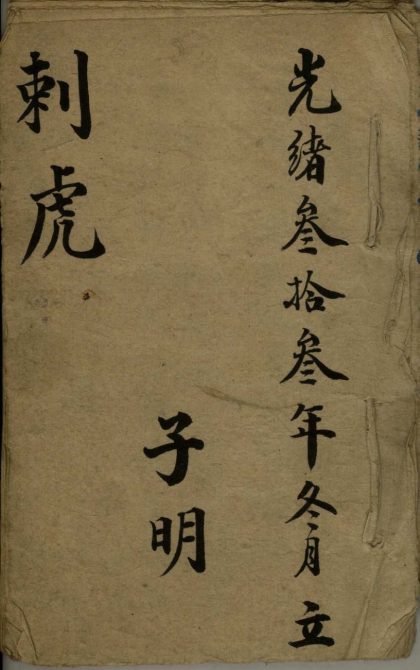 光緒叁拾叁年冬月立
子明
刺虎